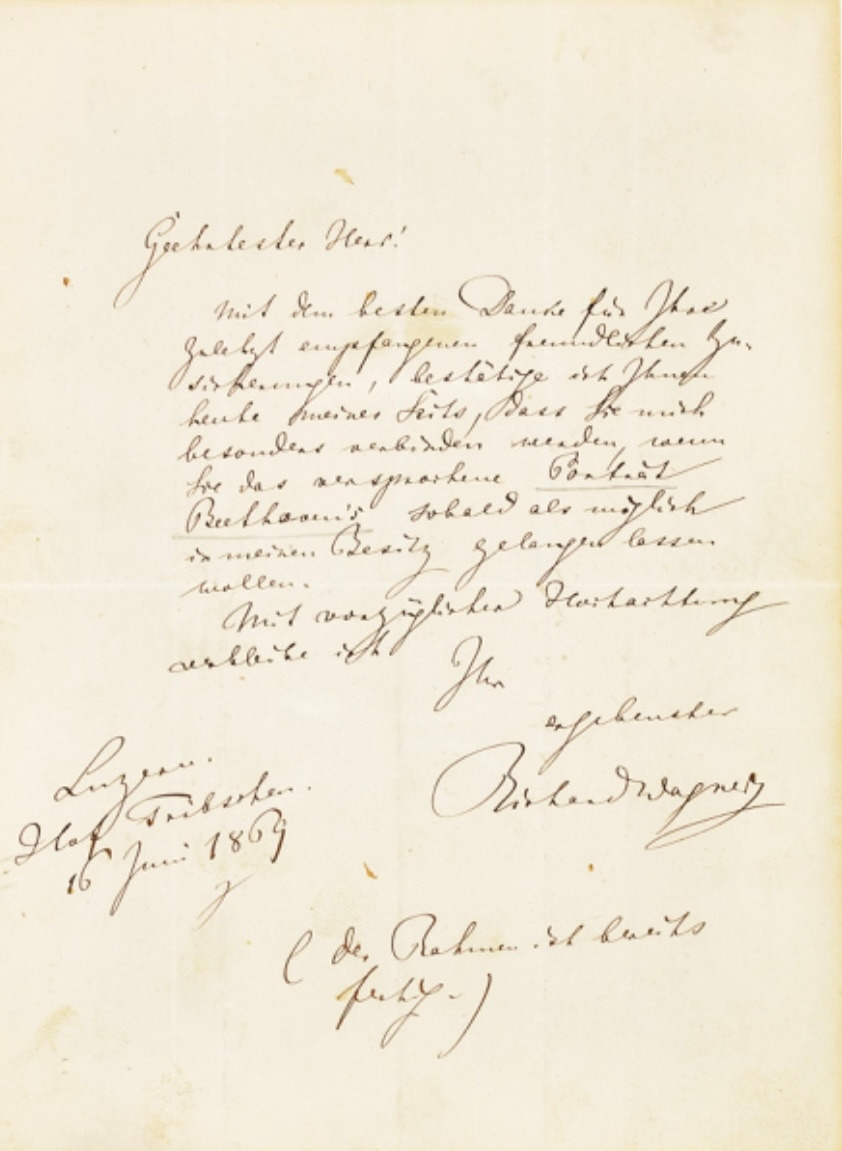 Geehrtester Herr!
Mit dem besten Danke für Ihre
zuletzt empfangenen freundlichen Zu-
sicherungen, bestätige ich Ihnen
heute meiner Seits, dass Sie mich
besonders verbinden werden, wenn
Sie das versprochene Porträt
Beethoven's sobald als möglich
in meinen Besitz gelangen lassen
wollen.
Mit vorzüglicher Hochachtung
verbleibe ich
Ihr
ergebenster
Richard Wagner
Luzern.
Hof Tribschen.
16 Juni 1869
( der Rahmen ist bereits
fertig. )